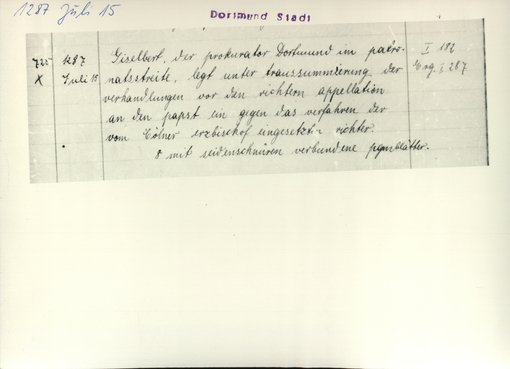 1287 Juli 15
Dortmund Stadt
725 1287 Giselbert, der prokurator Dortmund im patro- I 182
X Juli 15 natsstreite, legt unter transsummierung der Erg. I, 287
verhandlungen vor den richtern appellation
an den papst ein gegen das verfahren der
vom Cölner erzbischof eingesetzten richter.
8 mit seidenschnüren verbundene pgmblätter.